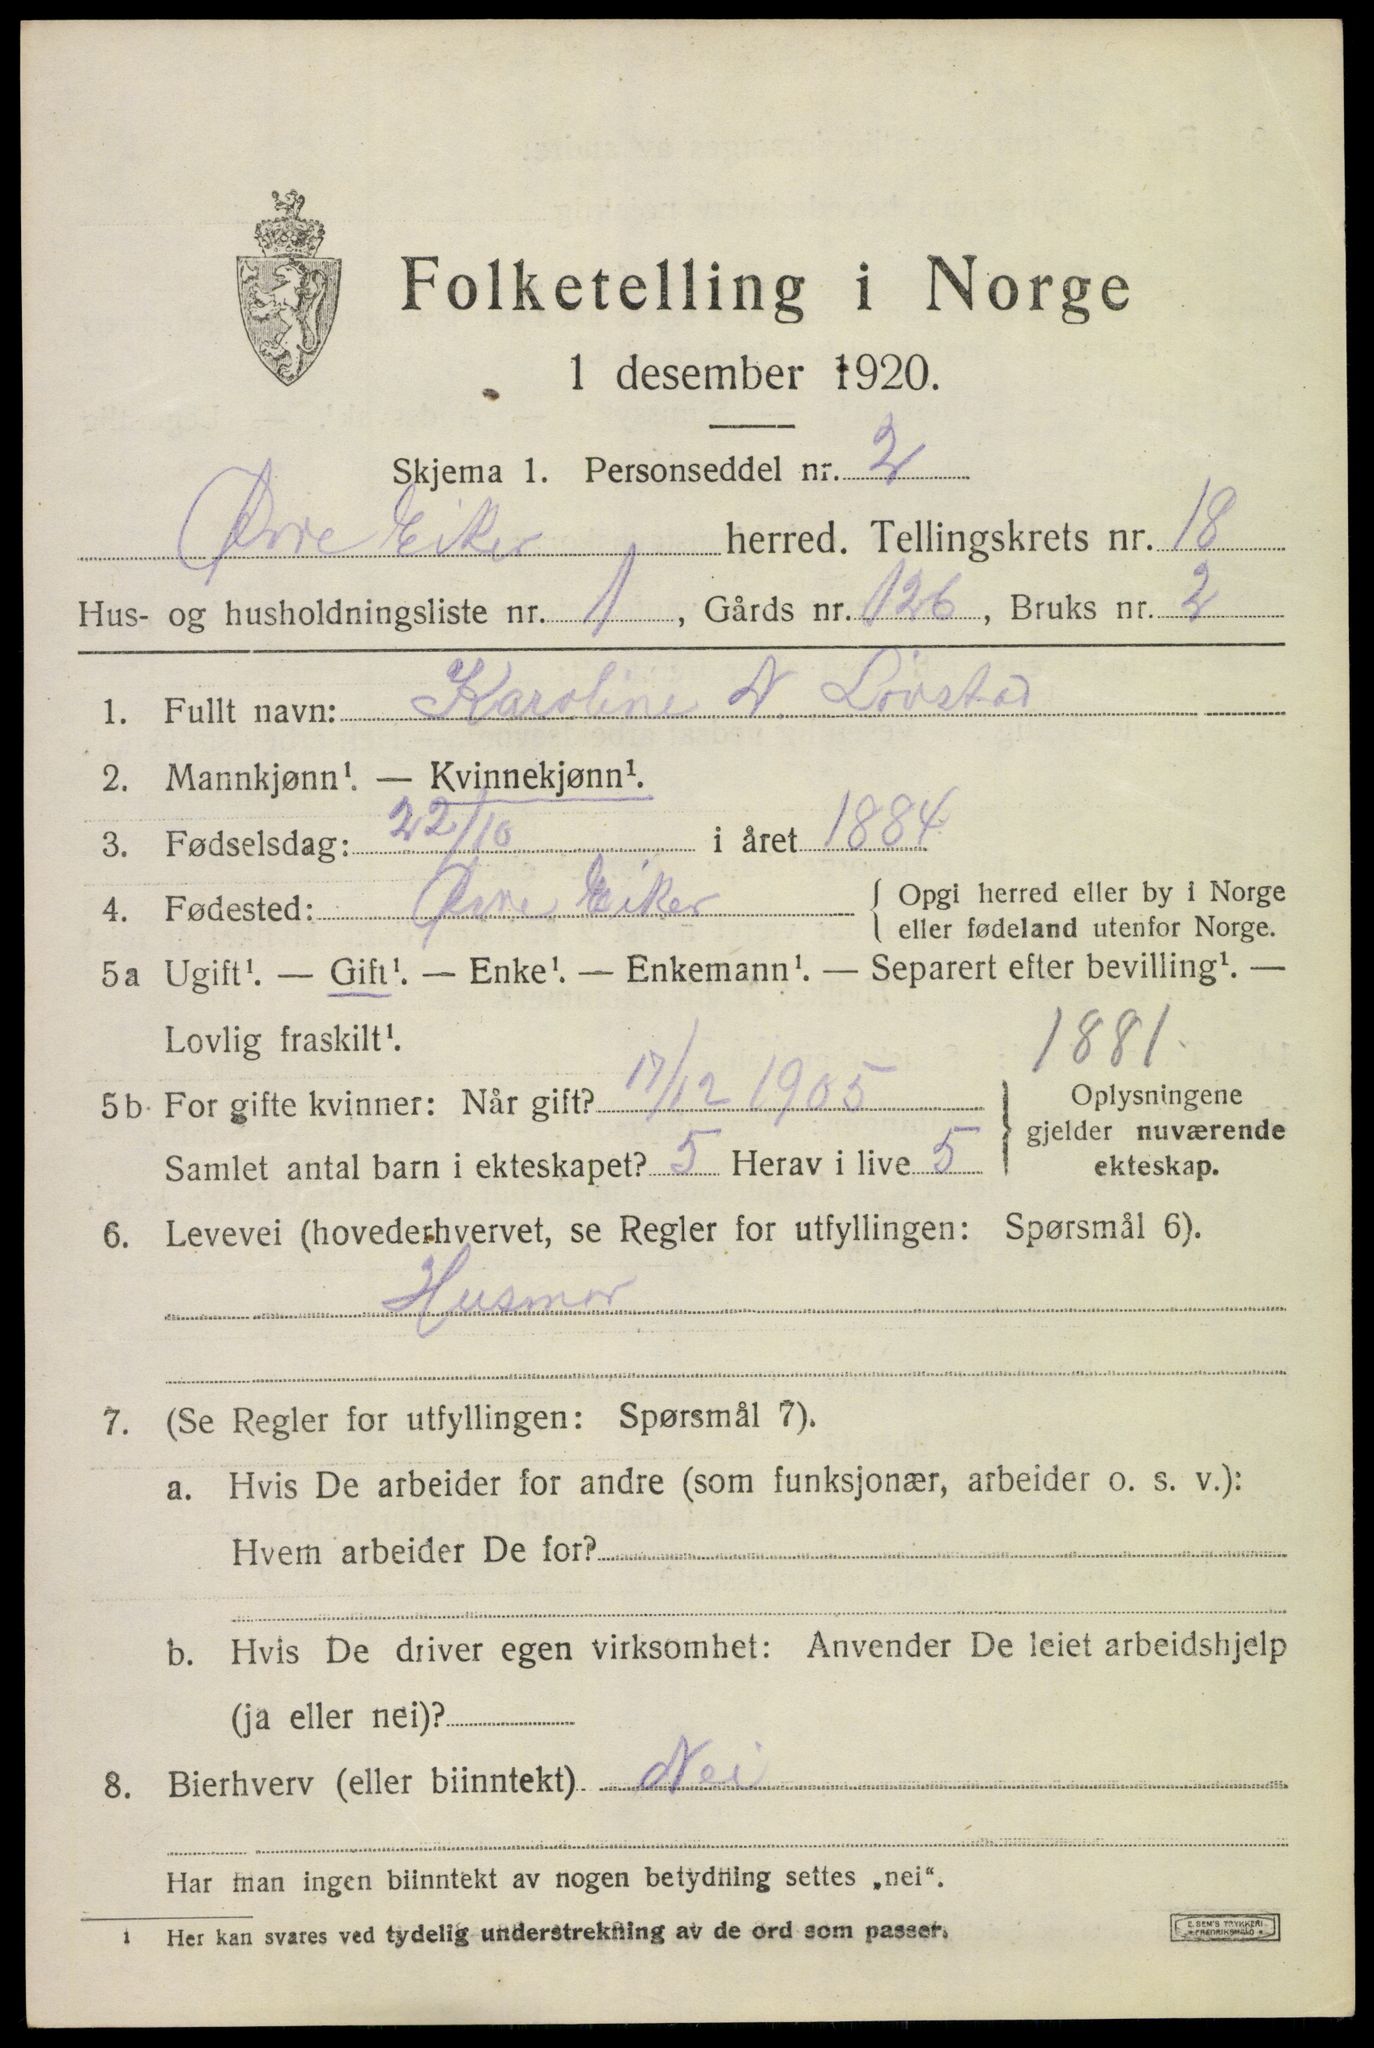 Folketelling i Norge
1 desember 1920.
Skjema 1. Personseddel nr. 2
Øvre Eiker herred. Tellingskrets nr. 18
Hus- og husholdningsliste nr. 1, Gårds nr. 126, Bruks nr. 2
1. Fullt navn: Karoline N. Lövstad
2. Mannkjønn¹. — Kvinnekjønn¹.
3. Fødselsdag: 22/10 i året 1884
4. Fødested: Øvre Eiker { Opgi herred eller by i Norge
eller fødeland utenfor Norge.
5a Ugift¹. — Gift¹. — Enke¹. — Enkemann¹. — Separert efter bevilling¹. —
Lovlig fraskilt¹.
1881.
5b For gifte kvinner: Når gift? 17/12 1905
Samlet antal barn i ekteskapet? 5 Herav i live 5
Oplysningene
gjelder nuværende
ekteskap.
6. Levevei (hovederhvervet, se Regler for utfyllingen: Spørsmål 6).
Husmor
7. (Se Regler for utfyllingen: Spørsmål 7).
a. Hvis De arbeider for andre (som funksjonær, arbeider o. s. v.):
Hvem arbeider De for?
b. Hvis De driver egen virksomhet: Anvender De leiet arbeidshjelp
(ja eller nei)?
8. Bierhverv (eller biinntekt) Nei
Har man ingen biinntekt av nogen betydning settes „nei“.
1 Her kan svares ved tydelig understrekning av de ord som passer.
E. SEM'S TRYKKERI
FREDRIKSHALD